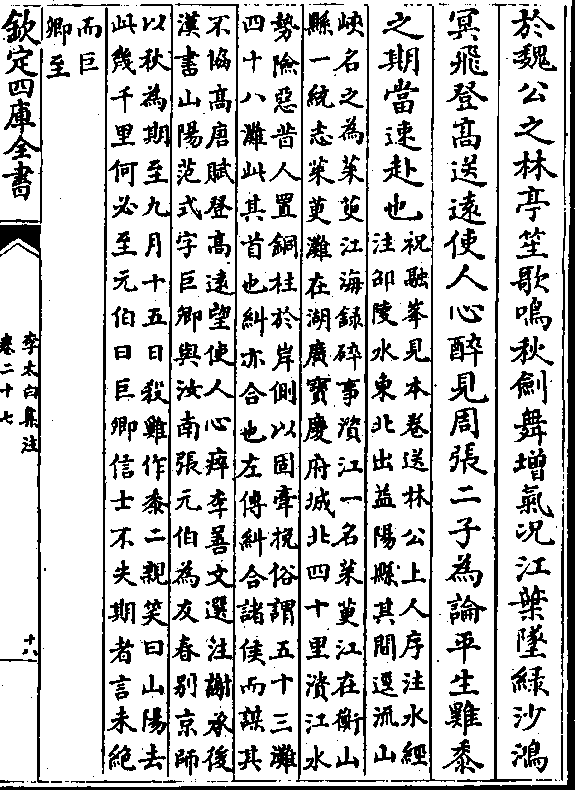 於魏公之林亭笙歌鳴秋劍舞増氣况江葉墜緑沙鴻
冥飛登髙送逺使人心醉見周張二子為論平生雞黍
之期當速赴也
祝融峯見本巻送林公上人序注水經
注邵陵水東北出益陽縣其間逕流山
峽名之為茱萸江海録碎事濱江一名茱萸江在衡山
縣一統志茱萸灘在湖廣寳慶府城北四十里濱江水
勢險惡昔人置銅柱於岸側以固牽挽俗謂五十三灘
四十八灘此其首也糾亦合也左傳糾合諸侯而謀其
不恊髙唐賦登髙逺望使人心瘁李善文選注謝承後
漢書山陽范式字巨卿與汝南張元伯為友春别京師
以秋為期至九月十五日殺雞作黍二親笑曰山陽去
此幾千里何必至元伯曰巨卿信士不失期者言未絶
而巨
卿至
欽定四庫全書
李太白集注
巻二十七
十八